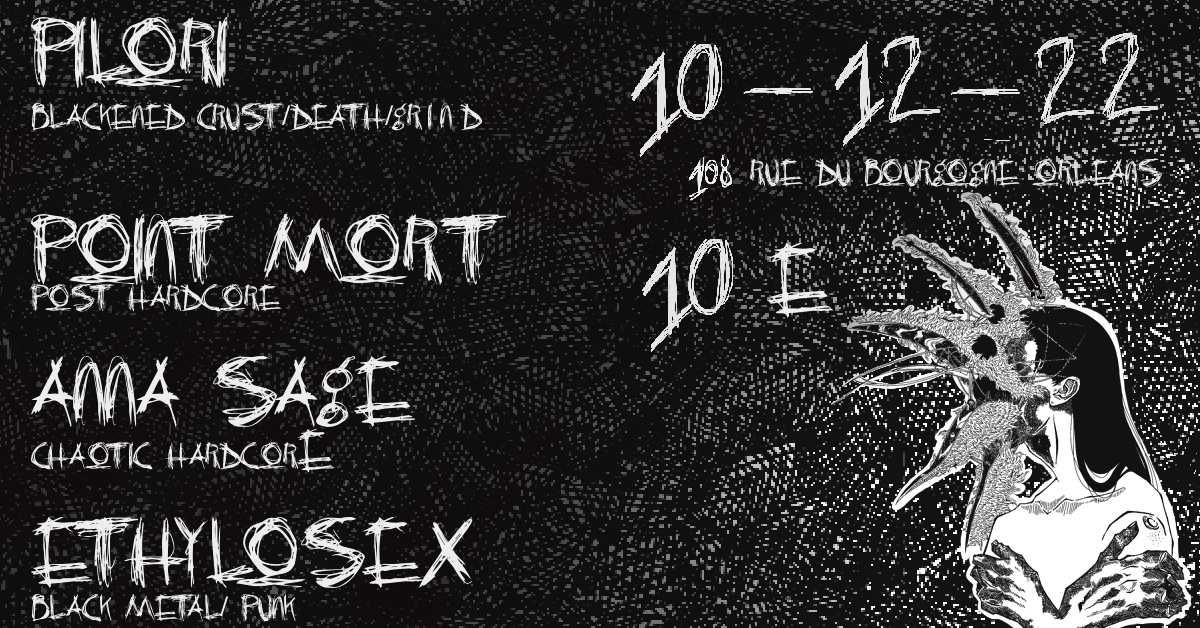 PILORI
BLACKENED CRUST/DEATH/GRIND
POINT MORT
POST HARDCORE
AMA SAGE
CHAOTIC HARDCORE
ETHYLOSEX
BLACK METAL/ PUNK
10 - 12 - 22
108 RUE DU BOURGOGNE ORLEANS
10 E